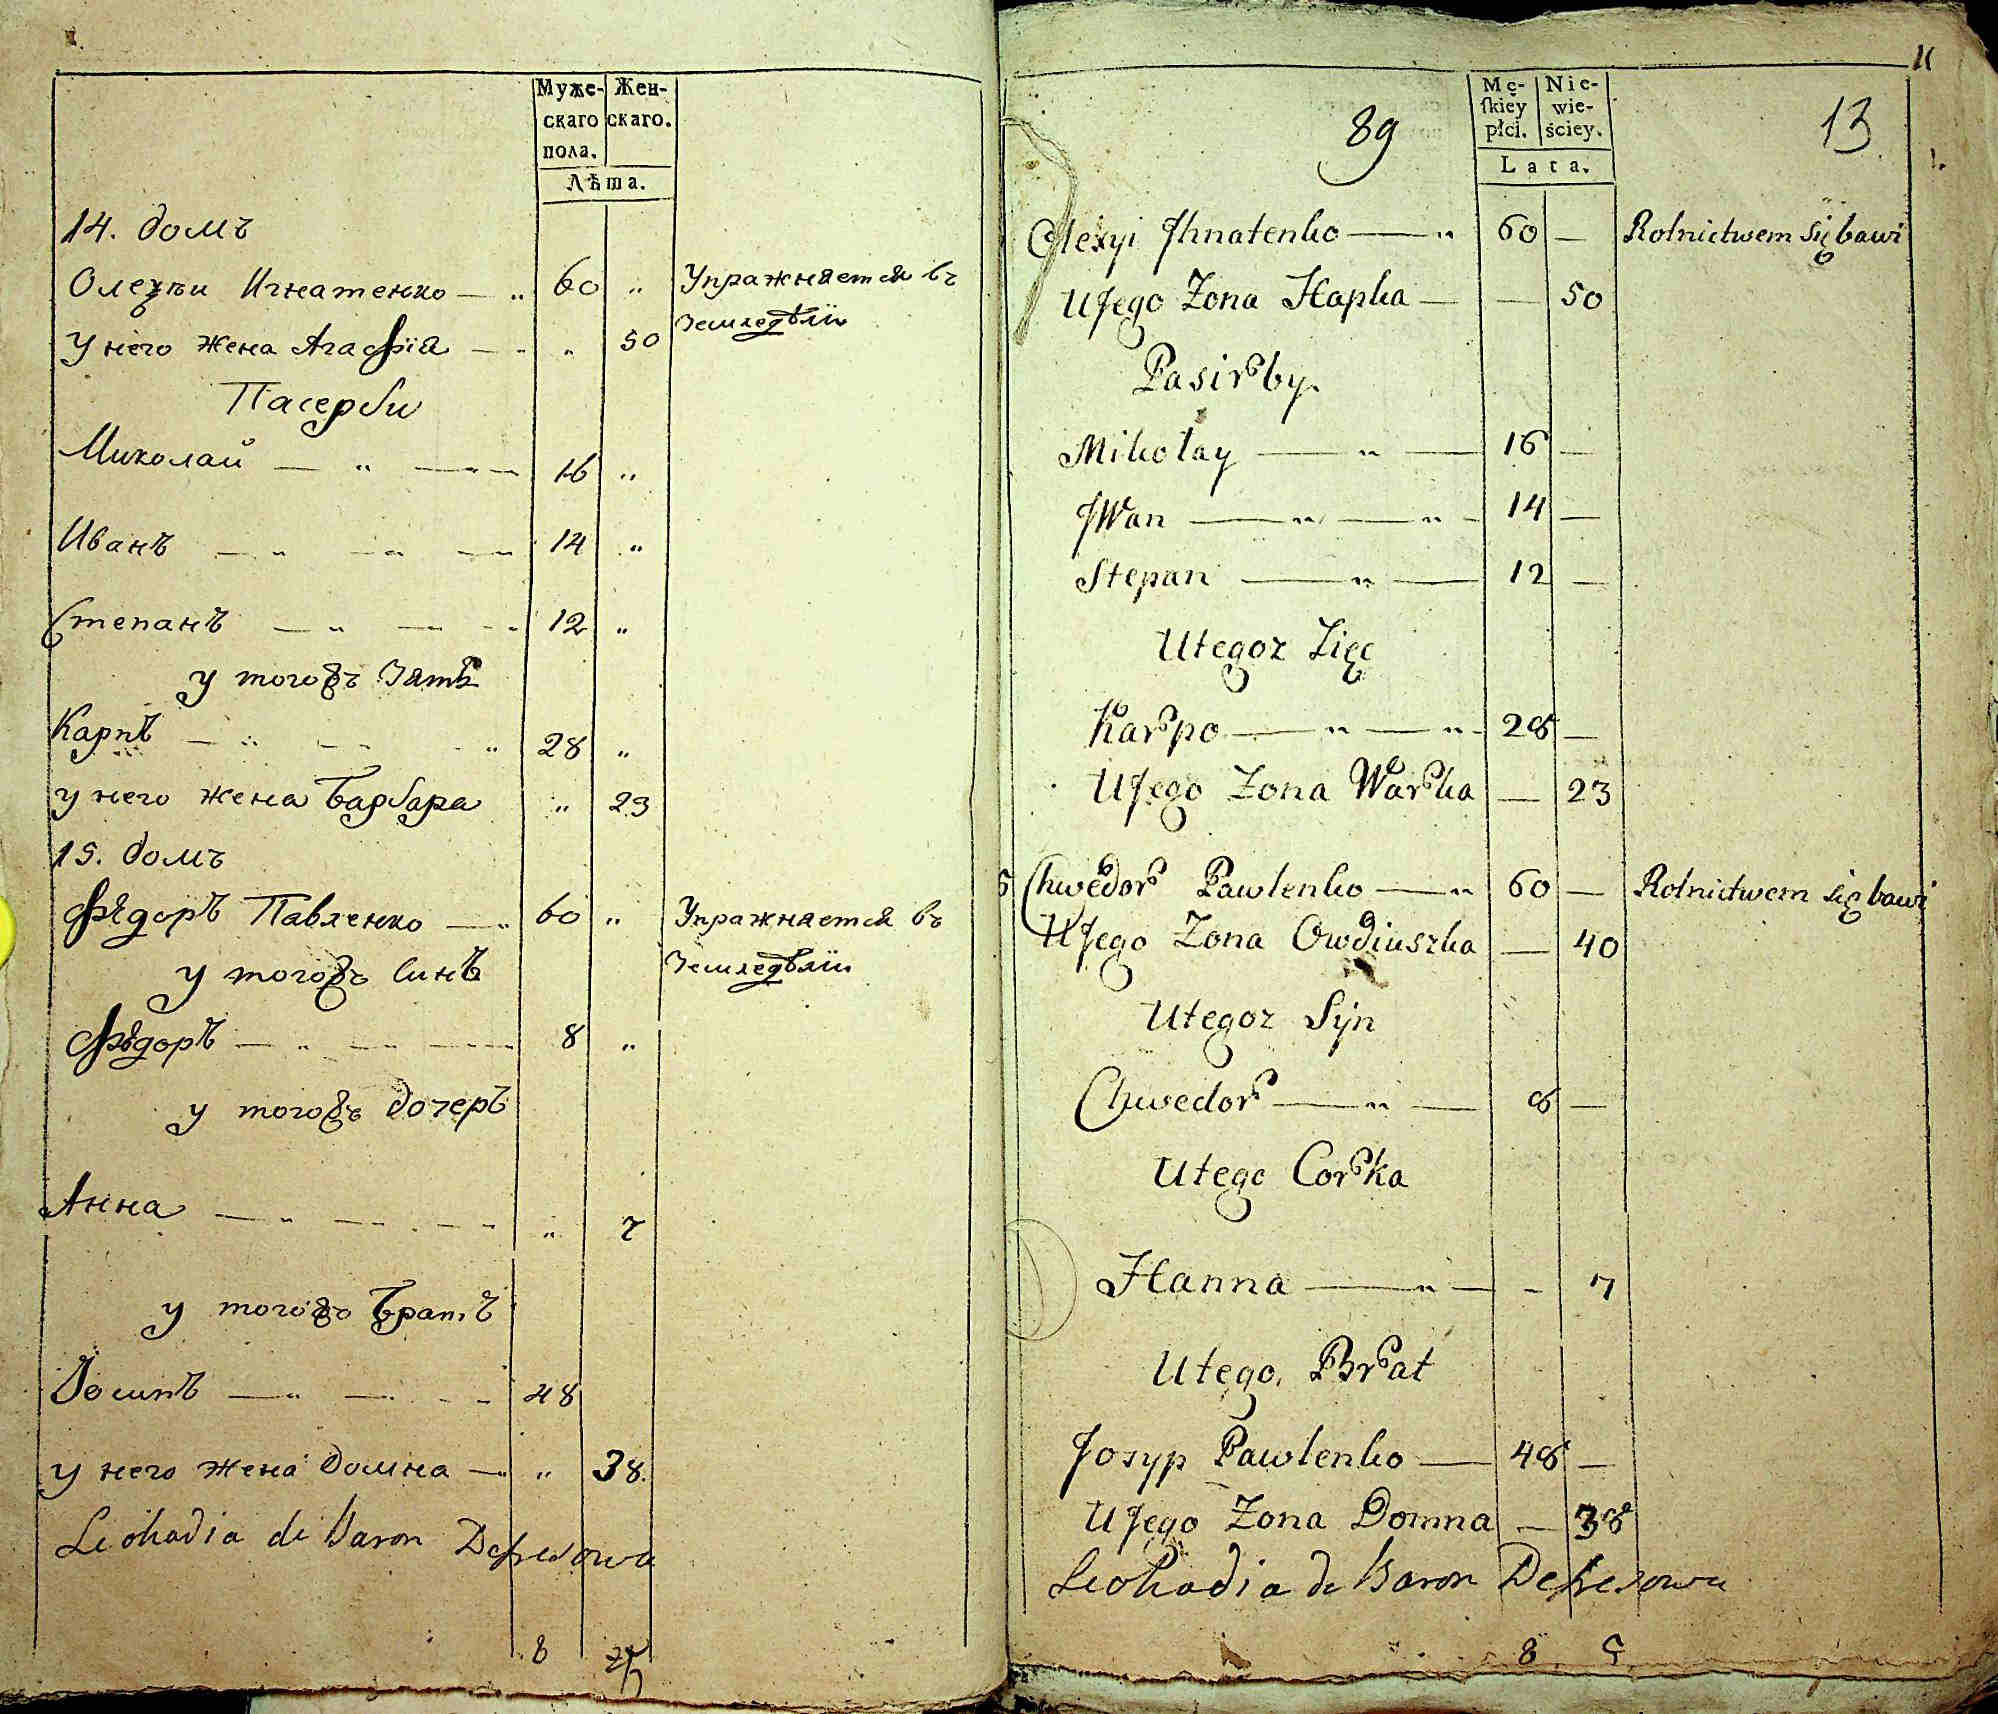 Муже- Жен-
скаго скаго.
пола.
Лѣта.
14. домъ
Олехъи Игнатенко — „ 60 „ Упражняется въ
Земледѣлїи
у него жена Агафїя — „ „ 50
Пасерби
Миколай — „ — 16 „
Иванъ — „ — 14 „
Степанъ — „ — 12 „
у тогожъ Зять
Карпъ — „ — „ 28 „
у него жена Варвара „ 23
15. домъ
Фѣдоръ Павленко — „ 60 „ Упражняется въ
Земледѣлїи
у тогожъ Синъ
Фѣдоръ — „ — 8 „
у тогожъ дочеръ
Анна — „ — „ 7
у тогожъ Братъ
— „ — 48
у него жена Домна — „ „ 38.
Leokadia de Baron
8
11
Mę- Nie-
skiey wie-
płci. ściey.
Lata.
89
13
Olexyi Ihnatenko — „ 60 — Rolnictwem się bawi
U Jego Zona Hapka — — 50
Pasirby.
Mikołay — „ — 16 —
Iwan — „ — „ - 14 —
Stepan — „ — 12 —
U tegoz Zięć
Karpo — „ — „ - 28 —
U Jego Zona Warka — 23
5 Chwedor Pawlenko — „ 60 — Rolnictwem się bawi
U Jego Zona Owdiuszka — 40
U tegoz Syn
Chwedor — „ — 8 —
U tego Corka
Hanna — „ — - 7
U tego. Brat
Josyp Pawlenko — 48 —
U Jego Zona Domna — 38
Leokadia de Baron
8 5